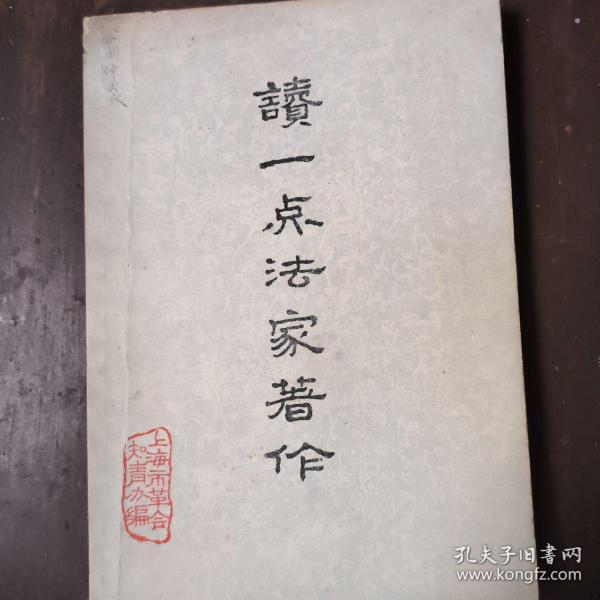 讀一点法家著作
上海市革会
知青办编
孔夫子旧书网
www.kongfz.com